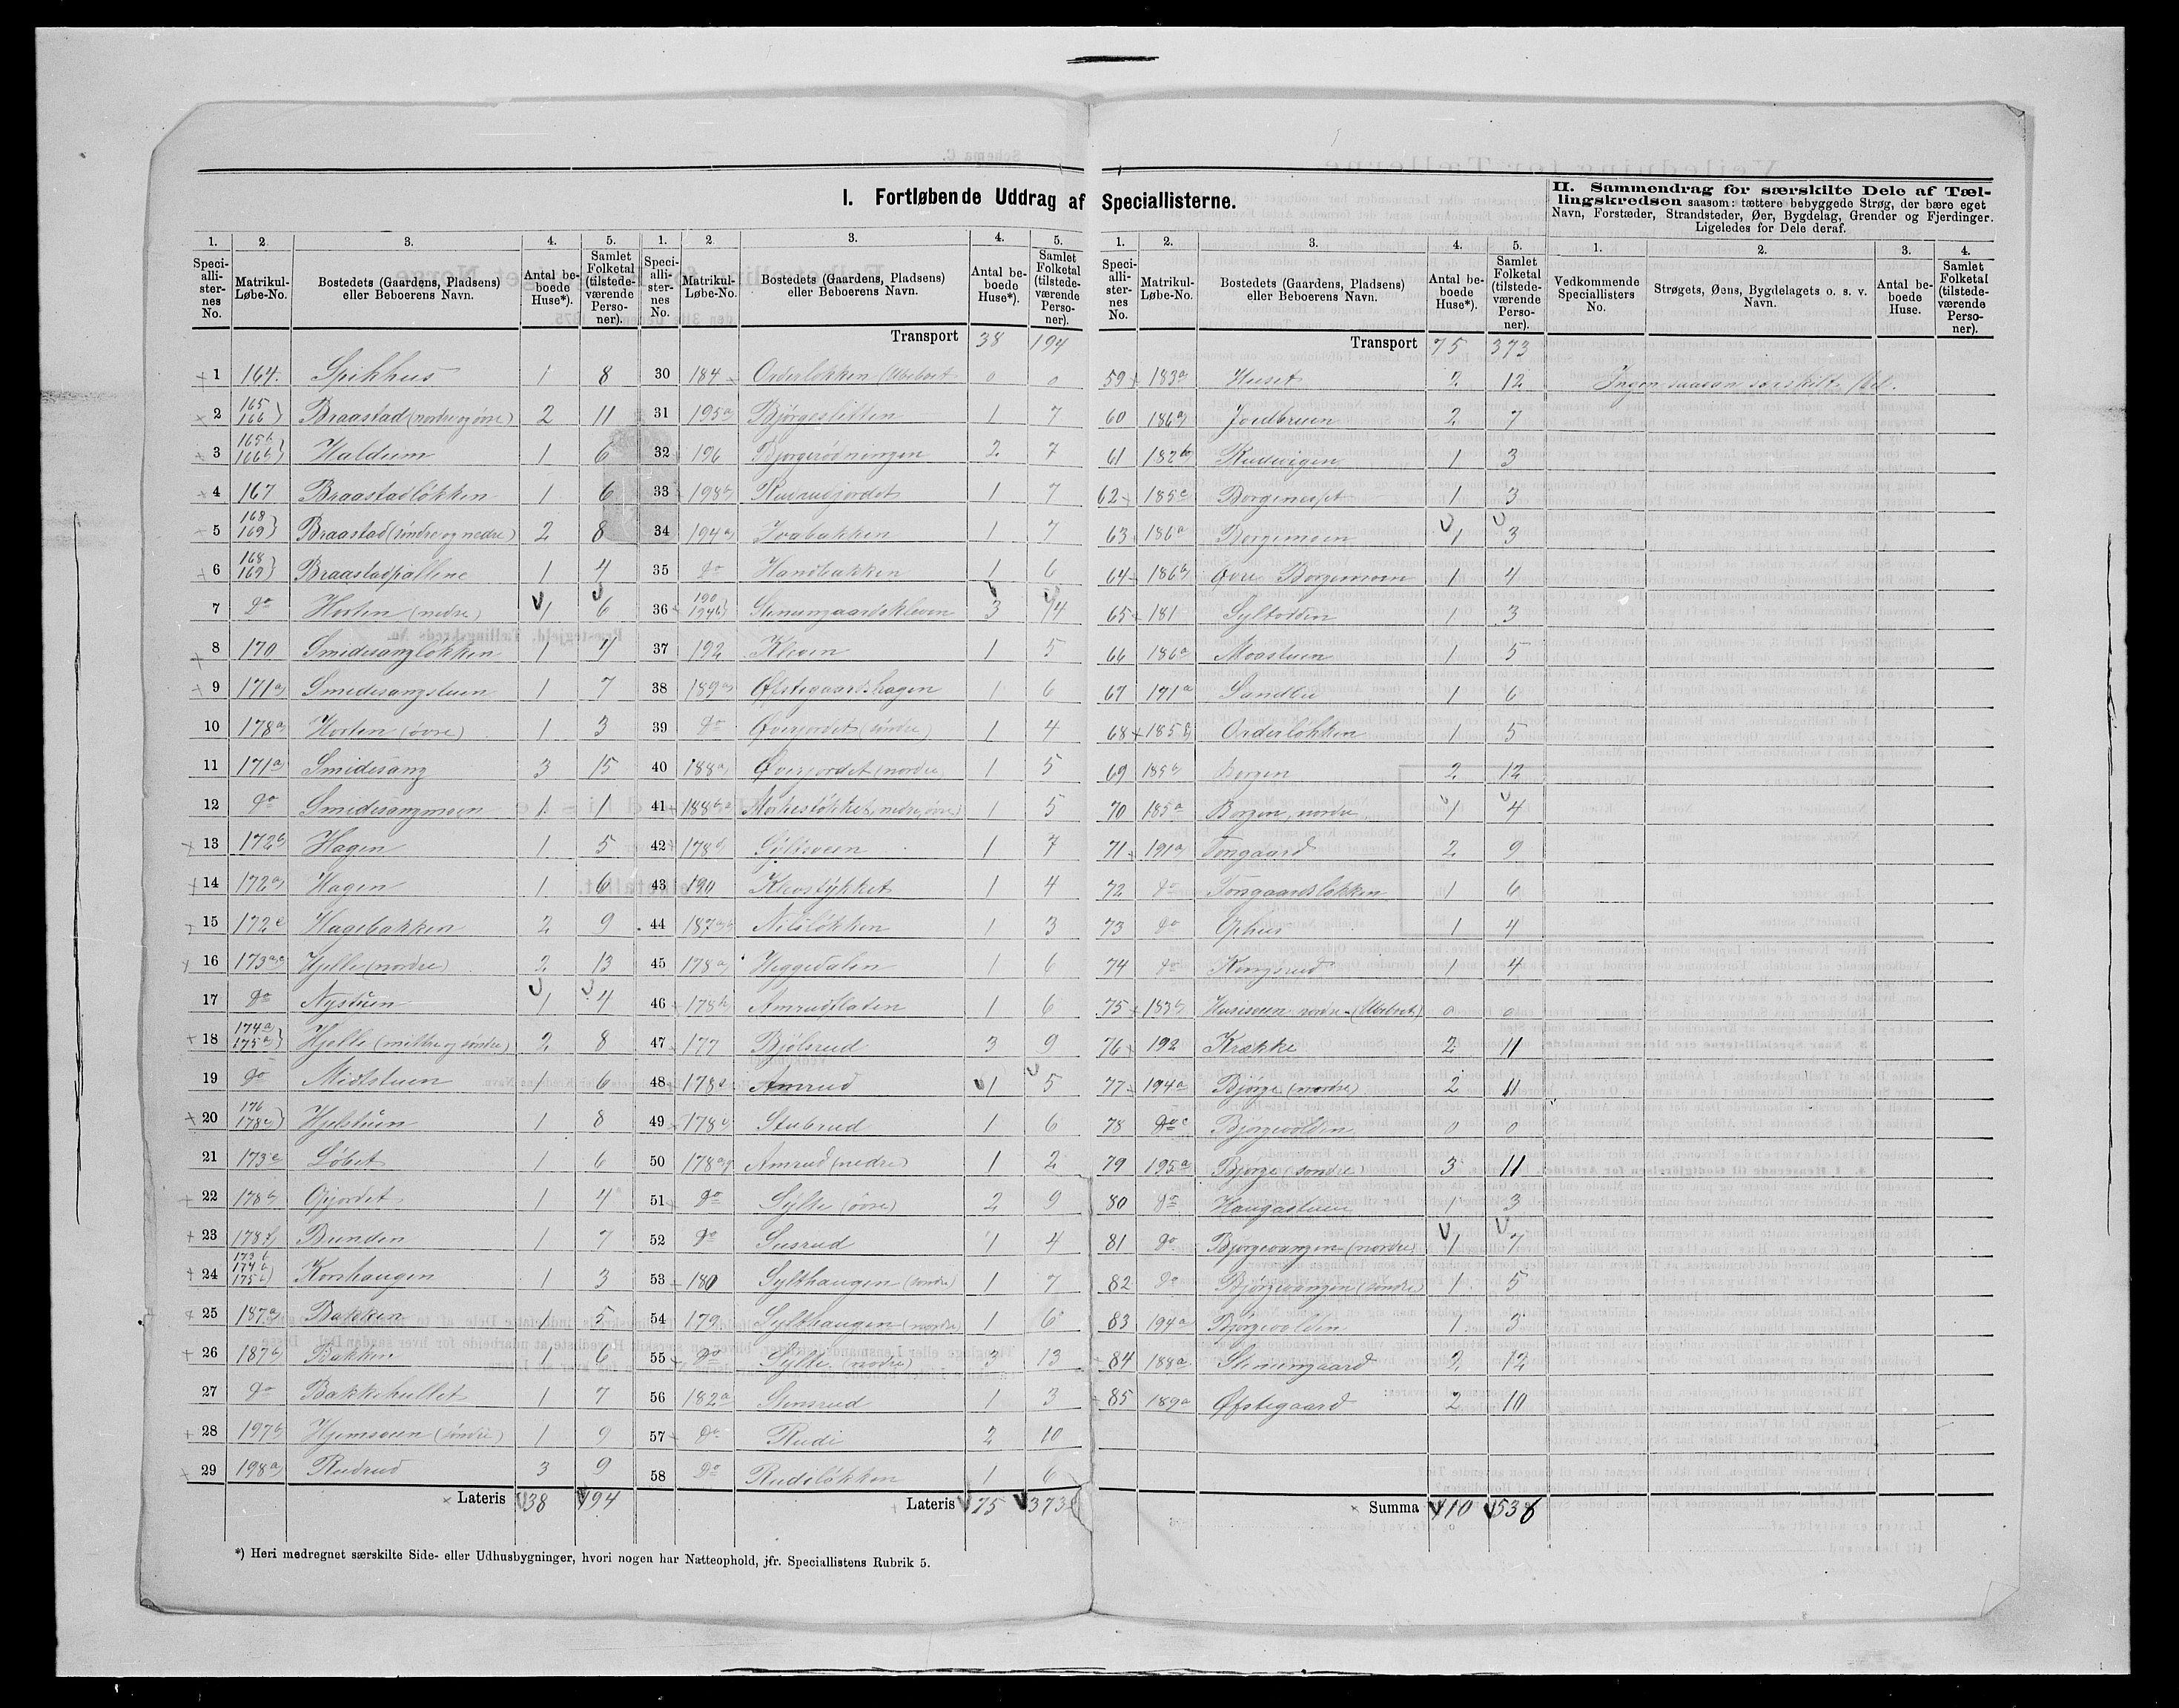 I. Fortløbende Uddrag af Speciallisterne.
II. Sammendrag for særskilte Dele af Tæl-
lingskredsen saasom: tættere bebyggede Strøg, der bære eget
Navn, Forstæder, Strandsteder, Øer, Bygdelag, Grender og Fjerdinger.
Ligeledes for Dele deraf.
1. 2. 3. 4. 5. 1. 2. 3. 4. 5.
Speci-alli-ster-nes No. Matrikul-Løbe-No. Bostedets (Gaardens, Pladsens) eller Beboerens Navn. Antal be-boede Huse*). Samlet Folketal (tilstede-værende Perso-ner).
Transport 38 194
1 164. Spikhus 1 8
2 165 166 Braastad (nordre og øvre) 2 11
3 165b 166b Haldum 1 6
4 167 Braastadløkken 1 6
5 168 169 Braastad (søndre og nedre) 2 8
6 168 169 Braastadpallene 1 4
7 Do Horten (nedre) 1 6
8 170 Smidesangløkken 1 4
9 171a Smidesangstuen 1 7
10 178a Horten (øvre) 1 3
11 171a Smidesang 3 15
12 Do Smidesangmoen 1 1
13 172b Hagen 1 5
14 172a Hagen 1 6
15 172c Hagebakken 2 9
16 173a Hjelle (nordre) 2 13
17 Do Nystuen 1 4
18 174a 175a Hjelle (mittre og søndre) 2 8
19 Do Midtstuen 1 6
20 176 178c Hjelstuen 1 8
21 173c Løbet 1 6
22 178b Opjordet 1 4
23 178f Bunden 1 7
24 173b 174b 175b Korshaugen 1 3
25 187a Bakken 1 5
26 187b Bakken 1 6
27 Do Bakkehullet 1 7
28 197b Hjemsveen (søndre) 1 9
29 198a Rudrud 3 9
Lateris 38 194
30 184 Orderløkken (Ubeboet 0 0
31 195a Bjørgeslitten 1 7
32 196 Bjørgerødningen 2 7
33 198b Rudrudjordet 1 7
34 194a Ivabakken 1 7
35 Do Hansbakken 1 6
36 190 194b Stenumgaardskleven 3 14
37 192 Kleven 1 5
38 189a Øfstegaardshagen 1 6
39 Do Øverjordet (søndre) 1 4
40 188a Øverjordet (nordre 1 5
41 188b 1 5
42 178 1 7
43 190 Klevstykket 1 4
44 187 Nilsløkken 1 3
45 178a Heggedalen 1 6
46 178h Amrudsladen 1 6
47 177 Bjølsrud 3 9
48 178 Amrud 1 5
49 178 Stubrud 1 6
50 178a Amrud (nedre) 1 2
51 Do Sylte (øvre) 2 9
52 Do Susrud 1 4
53 180 Sylthaugen (søndre) 1 7
54 179 Sylthaugen (nordre) 1 6
55 Do Sylte (nordre) 3 13
56 182a Stensrud 1 3
57 Do Rudi 2 10
58 Do Rudiløkken 1 6
Lateris 75 373
1. 2. 3. 4. 5.
Speci-alli-ster-nes No. Matrikul-Løbe-No. Bostedets (Gaardens, Pladsens) eller Beboerens Navn. Antal be-boede Huse*). Samlet Folketal (tilstede-værende Perso-ner).
Transport 75 373
59 183a Huset 2 12
60 186 Jordbruen 2 7
61 182b Rudvigen 1 3
62 185c Borgenesset 1 3
63 186a Borgemoen 1 3
64 186b Øvre Borgemoen 1 4
65 181 Syltodden 1 3
66 186a Moastuen 1 5
67 171a Sandbu 1 6
68 185 Orderløkken 1 5
69 185b Borgen 2 12
70 185a Borgen, nordre 1 4
71 191a Tongaard 2 9
72 Do Tongaardsløkken 1 6
73 Do Ophus 1 4
74 Do Kongsrud 1 4
75 183b Husesveen nordre (Ubeboet) 0 0
76 192 Krække 2 11
77 194a Bjørge (nordre) 2 11
78 Do Bjørgevolden 0 0
79 195a Bjørge (søndre) 3 11
80 Do Haugastuen 1 3
81 Do Bjørgevangen (nordre) 1 7
82 Do Bjørgevangen (søndre) 1 5
83 194a Bjørgevolden 1 3
84 188a Stenumgaard 2 12
85 189a Øfstegaard 2 10
Summa 110 538
1. 2. 3. 4.
Vedkommende Speciallisters No. Strøgets, Øens, Bygdelagets o. s. v. Navn. Antal be-boede Huse. Samlet Folketal (tilstede-værende Perso-ner).
Ingen saadan særskilt Del.
*) Heri medregnet særskilte Side- eller Udhusbygninger, hvori nogen har Natteophold, jfr. Speciallistens Rubrik 5.